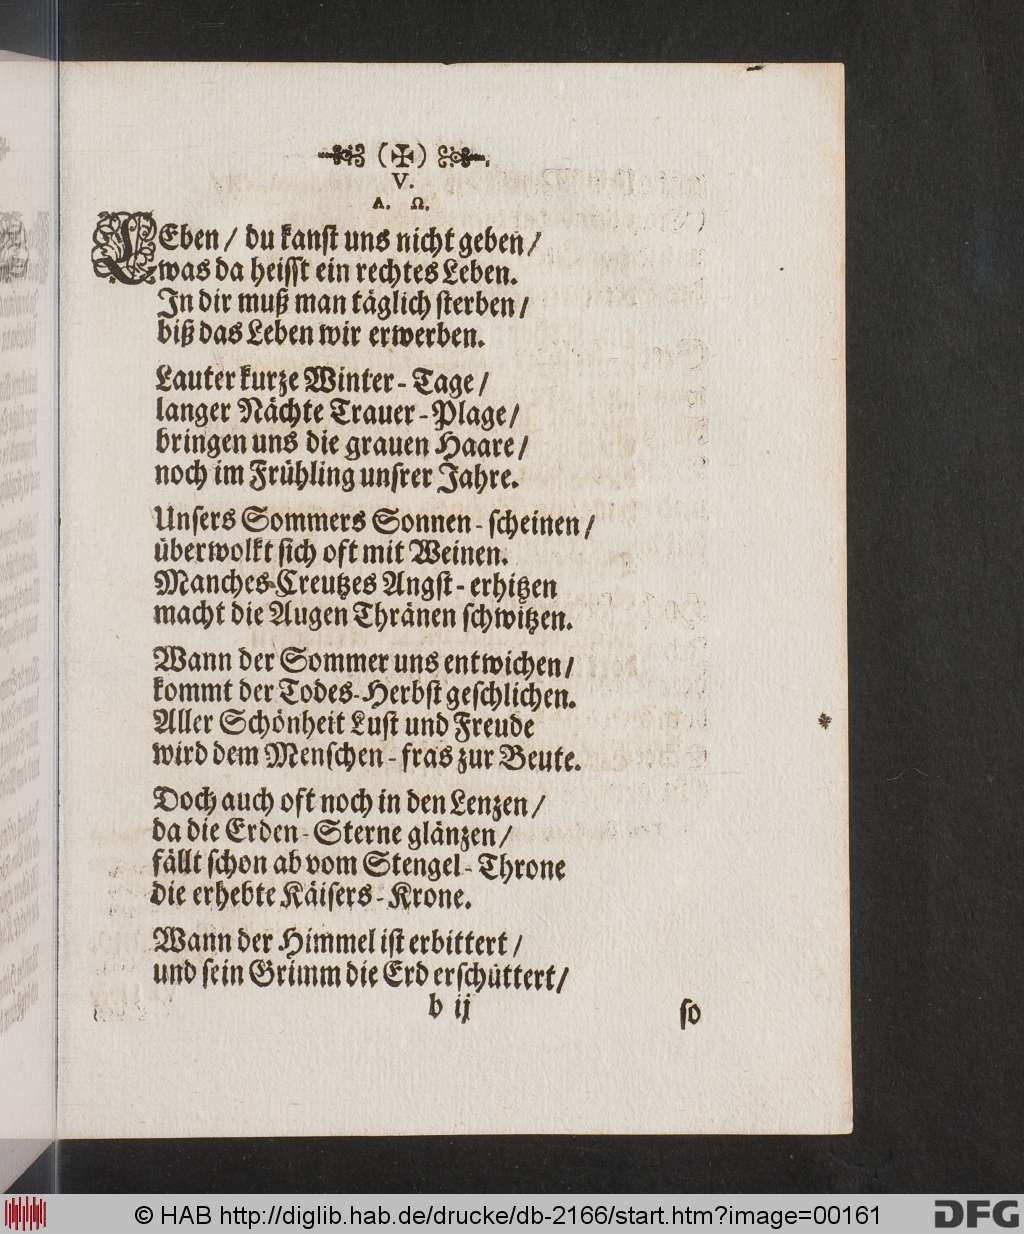 (✠)
V.
A. Ω.
LEben / du kanst uns nicht geben /
was da heisst ein rechtes Leben.
In dir muß man täglich sterben /
biß das Leben wir erwerben.
Lauter kurze Winter-Tage /
langer Nächte Trauer-Plage /
bringen uns die grauen Haare /
noch im Frühling unsrer Jahre.
Unsers Sommers Sonnen-scheinen /
überwolkt sich oft mit Weinen.
Manches-Creutzes Angst-erhitzen
macht die Augen Thränen schwitzen.
Wann der Sommer uns entwichen /
kommt der Todes-Herbst geschlichen.
Aller Schönheit Lust und Freude
wird dem Menschen-fras zur Beute.
Doch auch oft noch in den Lenzen /
da die Erden-Sterne glänzen /
fällt schon ab vom Stengel-Throne
die erhebte Käisers-Krone.
Wann der Himmel ist erbittert /
und sein Grimm die Erd erschüttert /
b ij
so
© HAB http://diglib.hab.de/drucke/db-2166/start.htm?image=00161
DFG